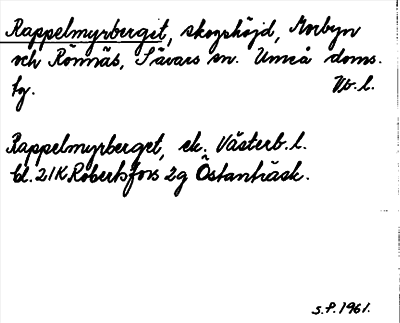 Rappelmyrberget, skogshöjd, Morbyn
och Rönnäs, Sävars sn. Umeå doms.
tg. Vb.l.
Rappelmyrberget, ek. Västerb.l.
bl. 21K Robertsfors 2g Östanträsk.
S.P. 1961.